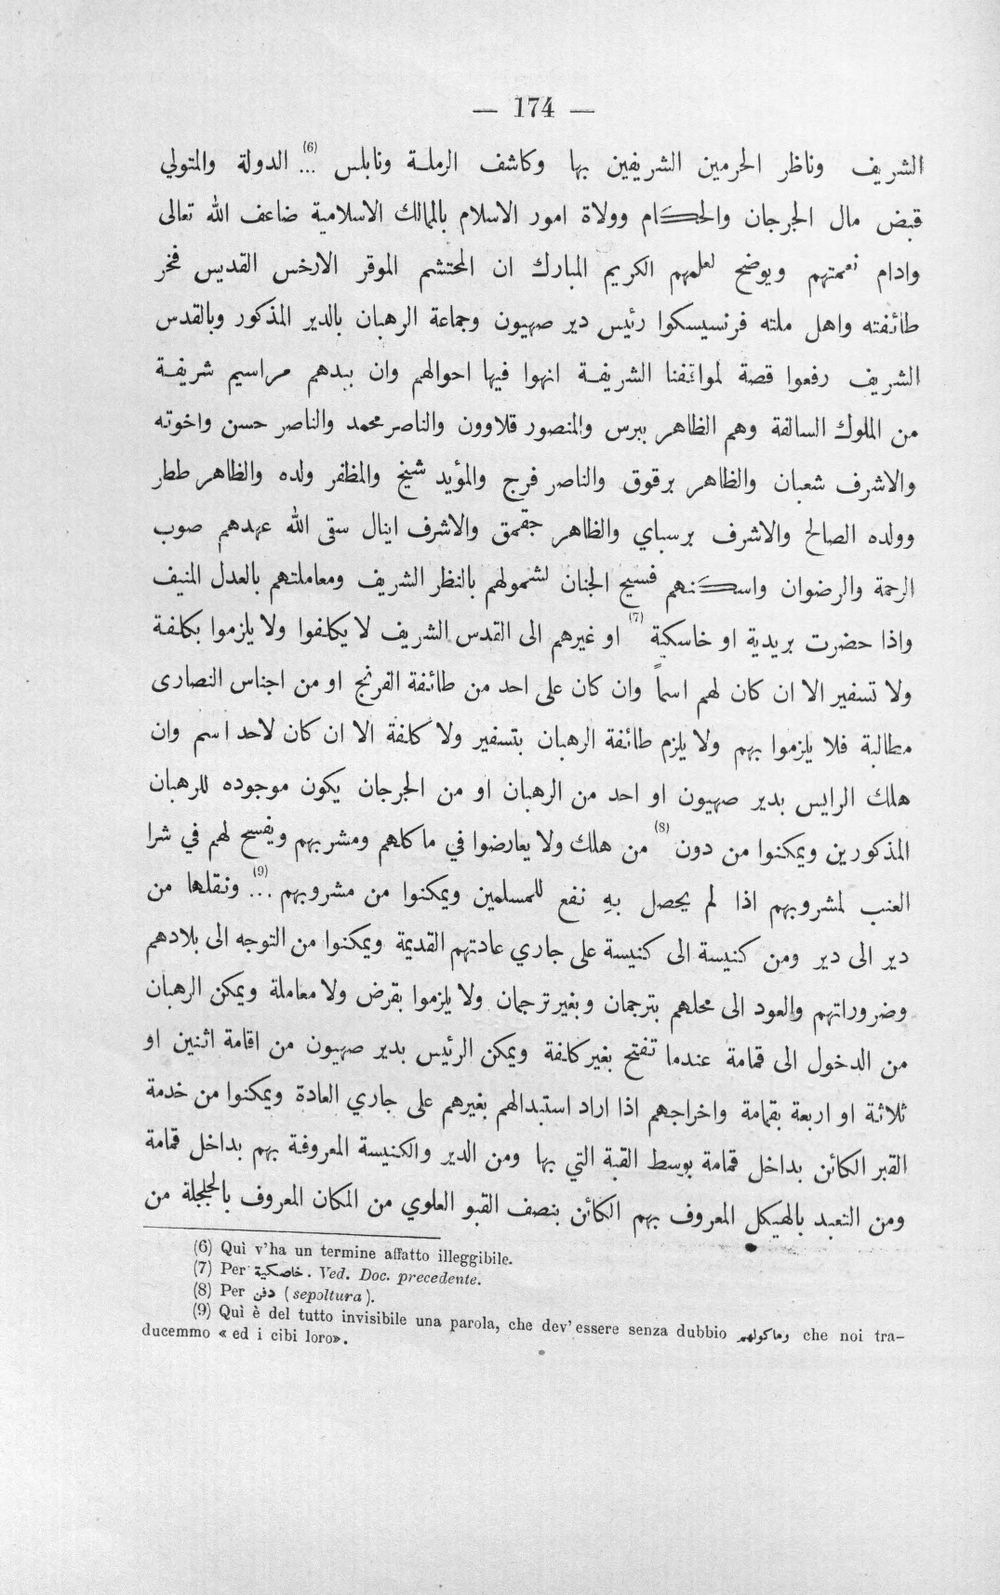 — 174 —
الشريف وناظر الحرمين الشريفين بها وكاشف الرملة ونابلس (6) ... الدولة والمتولي
قبض مال الجرجان والحكام وولاة امور الاسلام بالممالك الاسلامية ضاعف الله تعالى
وادام نعمتهم ويوضح لعلمهم الكريم المبارك ان المحتشم الموقر الارخس القديس فخر
طائفته واهل ملته فرنسيسكوا رئيس دير صهيون وجماعة الرهبان بالدير المذكور وبالقدس
الشريف رفعوا قصة لمواقفنا الشريفة انهوا فيها احوالهم وان بيدهم مراسيم شريفة
من الملوك السالفة وهم الظاهر بيبرس والمنصور قلاوون والناصر محمد والناصر حسن واخوته
والاشرف شعبان والظاهر برقوق والناصر فرج والمؤيد شيخ والمظفر ولده والظاهر ططر
وولده الصالح والاشرف برسباي والظاهر جقمق والاشرف اينال سقى الله عهدهم صوب
الرحمة والرضوان واسكنهم فسيح الجنان لشمولهم بالنظر الشريف ومعاملتهم بالعدل المنيف
واذا حضرت بريدية او خاسكية (7) او غيرهم الى القدس الشريف لا يكلفوا ولا يلزموا بكلفة
ولا تسفير الا ان كان لهم اسماً وان كان على احد من طائفة الفرنج او من اجناس النصارى
مطالبة فلا يلزموا بهم ولا يلزم طائفة الرهبان بتسفير ولا كلفة الا ان كان لاحد اسم وان
هلك الرايس بدير صهيون او احد من الرهبان او من الجرجان يكون موجوده للرهبان
المذكورين ويمكنوا من دون (8) من هلك ولا يعارضوا في ماكلهم ومشربهم ويفسح لهم في شرا
العنب لمشروبهم اذا لم يحصل بهِ نفع للمسلمين ويمكنوا من مشروبهم ... (9) ونقلها من
دير الى دير ومن كنيسة الى كنيسة على جاري عادتهم القديمة ويمكنوا من التوجه الى بلادهم
وضروراتهم والعود الى محلهم بترجمان وبغير ترجمان ولا يلزموا بقرض ولا معاملة ويمكن الرهبان
من الدخول الى قمامة عندما تفتح بغير كلفة ويمكن الرئيس بدير صهيون من اقامة اثنين او
ثلاثة او اربعة بقمامة واخراجهم اذا اراد استبدالهم بغيرهم على جاري العادة ويمكنوا من خدمة
القبر الكائن بداخل قمامة بوسط القبة التي بها ومن الدير والكنيسة المعروفة بهم بداخل قمامة
ومن التعبد بالهيكل المعروف بهم الكائن بنصف القبو العلوي من المكان المعروف بالجلجلة من
(6) Quì v'ha un termine affatto illeggibile.
(7) Per خاصكية. Ved. Doc. precedente.
(8) Per دفن (sepoltura).
(9) Quì è del tutto invisibile una parola, che dev'essere senza dubbio وماكولهم che noi tra-
ducemmo « ed i cibi loro».